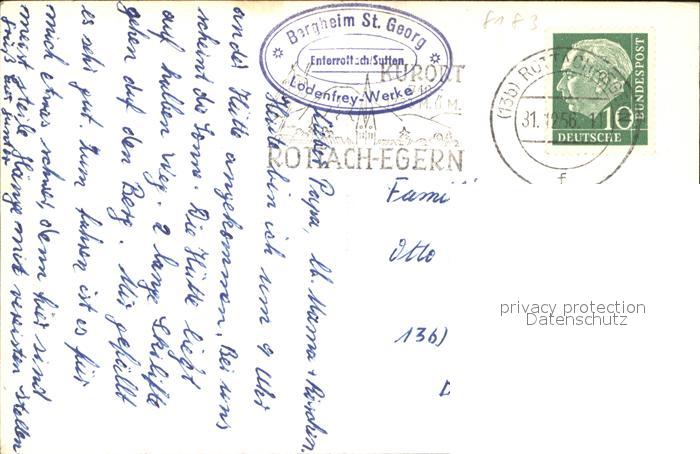 8183
Bergheim St. Georg
Enterrottach/Sutten
Lodenfrey-Werke
KURORT
M.
ROTTACH-EGERN
(13b) ROTTACH-EG
31.12.56
f
10
BUNDESPOST
DEUTSCHE
Lieber Papa, lb. Mama +
Heute bin ich um 9 Uhr
an der Hütte angekommen. Bei uns
scheint die Sonne. Die Hütte liegt
auf halben Weg. 2 lange Skilifte
gehen auf den Berg. Mir gefällt
es sehr gut. Zum fahren ist es für
mich etwas schwer, denn hier sind
meist steile Hänge mit vereisten Stellen
Gruß
Fami
Otto
13b)
privacy protection
Datenschutz